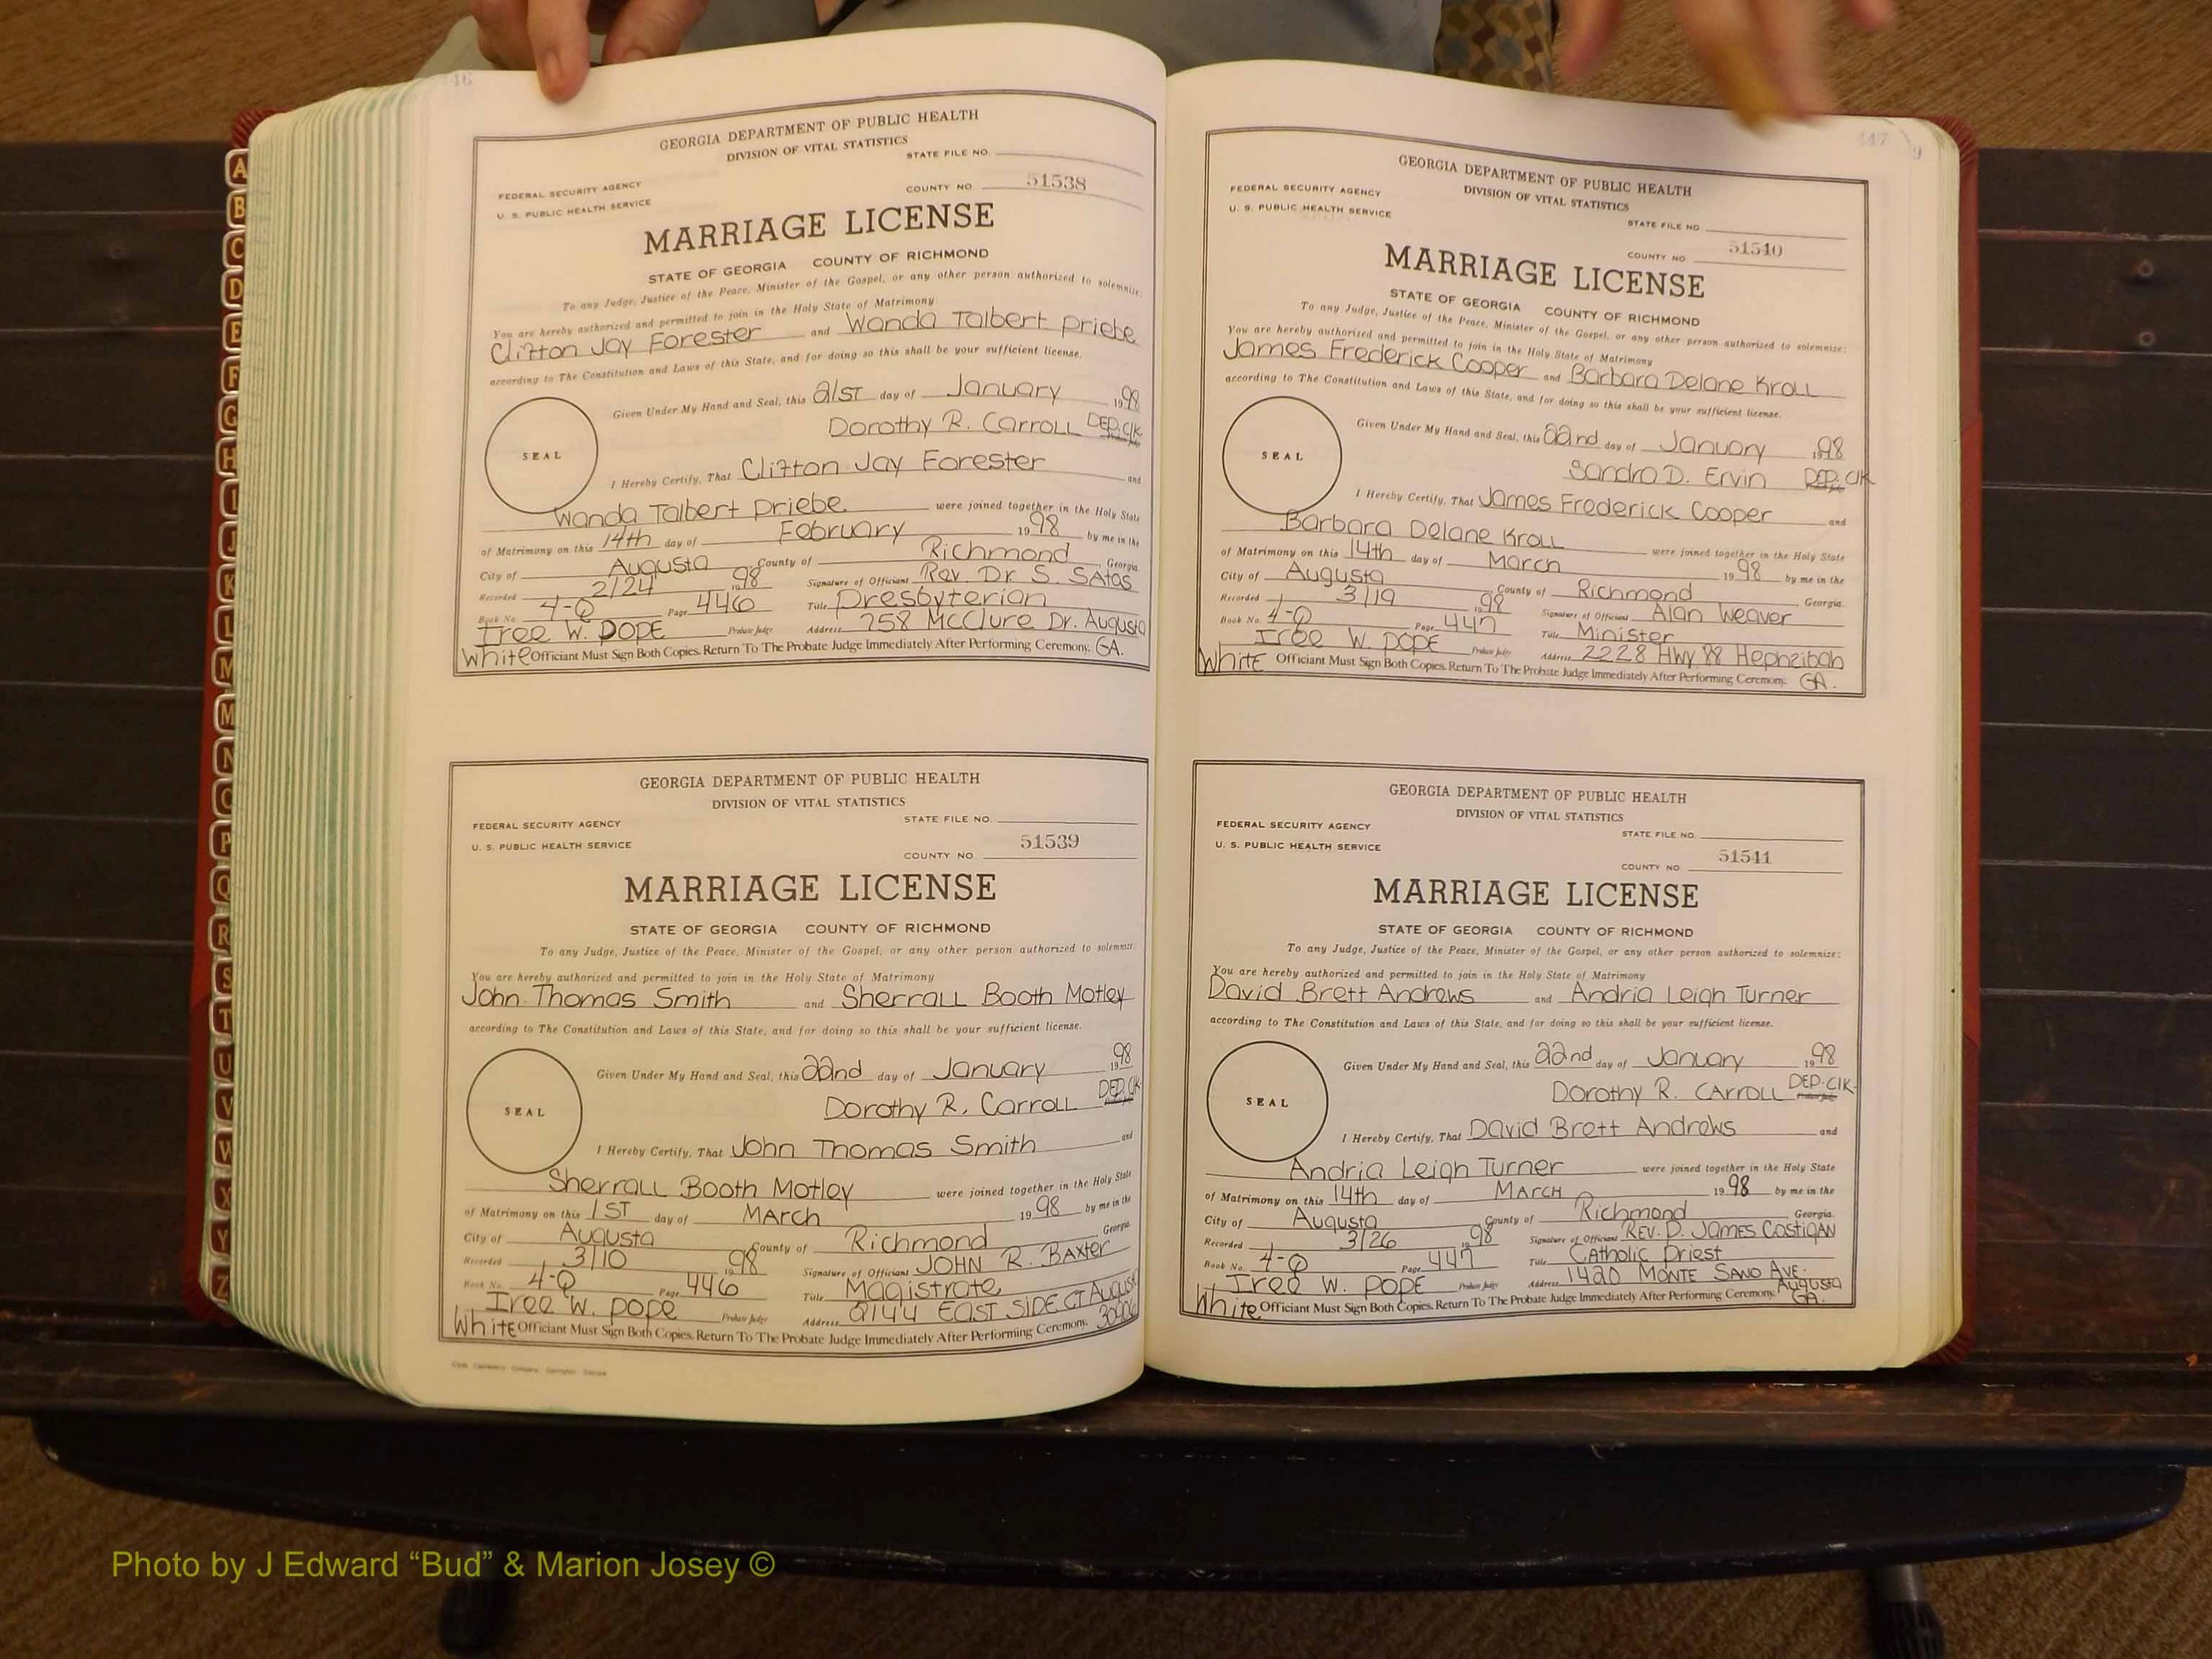 A
B
C
D
E
F
G
H
I
J
K
L
M
M
N
O
P
Q
R
S
T
U
V
W
X
Y
Z
GEORGIA DEPARTMENT OF PUBLIC HEALTH
DIVISION OF VITAL STATISTICS
STATE FILE NO.
FEDERAL SECURITY AGENCY
U. S. PUBLIC HEALTH SERVICE
COUNTY NO. 51538
MARRIAGE LICENSE
STATE OF GEORGIA COUNTY OF RICHMOND
To any Judge, Justice of the Peace, Minister of the Gospel, or any other person authorized to solemnize:
You are hereby authorized and permitted to join in the Holy State of Matrimony
Clifton Jay Forester and Wanda Talbert Priebe
according to The Constitution and Laws of this State, and for doing so this shall be your sufficient license.
Given Under My Hand and Seal, this 21ST day of January 1998
Dorothy R. Carroll DEP. Clk
SEAL
I Hereby Certify, That Clifton Jay Forester and
Wanda Talbert Priebe were joined together in the Holy State
of Matrimony on this 14th day of February 1998 by me in the
City of Augusta County of Richmond Georgia.
Recorded 2/24 1998 Signature of Officiant Rev. Dr S. SAtos
Book No. 4-Q Page 446 Title Presbyterian
Iree W. POPE Probate Judge Address 258 McClure Dr. Augusta
White Officiant Must Sign Both Copies. Return To The Probate Judge Immediately After Performing Ceremony. GA.
GEORGIA DEPARTMENT OF PUBLIC HEALTH
DIVISION OF VITAL STATISTICS
STATE FILE NO.
FEDERAL SECURITY AGENCY
U. S. PUBLIC HEALTH SERVICE
51539
COUNTY NO.
MARRIAGE LICENSE
STATE OF GEORGIA COUNTY OF RICHMOND
To any Judge, Justice of the Peace, Minister of the Gospel, or any other person authorized to solemnize:
You are hereby authorized and permitted to join in the Holy State of Matrimony
John Thomas Smith and Sherrall Booth Motley
according to The Constitution and Laws of this State, and for doing so this shall be your sufficient license.
Given Under My Hand and Seal, this 22nd day of January 1998
Dorothy R. Carroll DEP. Clk
SEAL
I Hereby Certify, That John Thomas Smith and
Sherrall Booth Motley were joined together in the Holy State
of Matrimony on this 1ST day of MArch 1998 by me in the
City of Augusta County of Richmond, Georgia.
Recorded 3/10 1998 Signature of Officiant JOHN R. BAXTER
Book No. 4-Q Page 446 Title Magistrate
Iree W. pope Probate Judge Address 2144 EAST SIDE CT August
White Officiant Must Sign Both Copies. Return To The Probate Judge Immediately After Performing Ceremony. 30906
147
9
GEORGIA DEPARTMENT OF PUBLIC HEALTH
DIVISION OF VITAL STATISTICS
FEDERAL SECURITY AGENCY
U. S. PUBLIC HEALTH SERVICE
STATE FILE NO.
COUNTY NO. 51540
MARRIAGE LICENSE
STATE OF GEORGIA COUNTY OF RICHMOND
To any Judge, Justice of the Peace, Minister of the Gospel, or any other person authorized to solemnize:
You are hereby authorized and permitted to join in the Holy State of Matrimony
James Frederick Cooper and Barbara Delane Kroll
according to The Constitution and Laws of this State, and for doing so this shall be your sufficient license.
Given Under My Hand and Seal, this 22nd day of January 1998
Sandra D. Ervin DEP. Clk
SEAL
I Hereby Certify, That James Frederick Cooper and
Barbara Delane Kroll were joined together in the Holy State
of Matrimony on this 14th day of March 1998 by me in the
City of Augusta County of Richmond Georgia.
Recorded 3/19 1998 Signature of Officiant Alan Weaver
Book No. 4-Q Page 447 Title Minister
Iree W. POPE Probate Judge Address 2228 HWY 88 Hephzibah
White Officiant Must Sign Both Copies. Return To The Probate Judge Immediately After Performing Ceremony. GA.
GEORGIA DEPARTMENT OF PUBLIC HEALTH
DIVISION OF VITAL STATISTICS
FEDERAL SECURITY AGENCY
STATE FILE NO.
U. S. PUBLIC HEALTH SERVICE
COUNTY NO. 51541
MARRIAGE LICENSE
STATE OF GEORGIA COUNTY OF RICHMOND
To any Judge, Justice of the Peace, Minister of the Gospel, or any other person authorized to solemnize:
You are hereby authorized and permitted to join in the Holy State of Matrimony
David Brett Andrews and Andria Leigh Turner
according to The Constitution and Laws of this State, and for doing so this shall be your sufficient license.
Given Under My Hand and Seal, this 22nd day of January 1998
Dorothy R. CArroll DEP. Clk.
SEAL
I Hereby Certify, That David Brett Andrews and
Andria Leigh Turner were joined together in the Holy State
of Matrimony on this 14th day of MArcH 1998 by me in the
City of Augusta County of Richmond Georgia.
Recorded 3/26 1998 Signature of Officiant REV. D. JAMES COStigAN
Book No. 4-Q Page 447 Title CAtholic Priest
Iree W. POPE Probate Judge Address 1420 MONTE SANO AVE. Augusta
White Officiant Must Sign Both Copies. Return To The Probate Judge Immediately After Performing Ceremony. GA.
Photo by J Edward “Bud” & Marion Josey ©